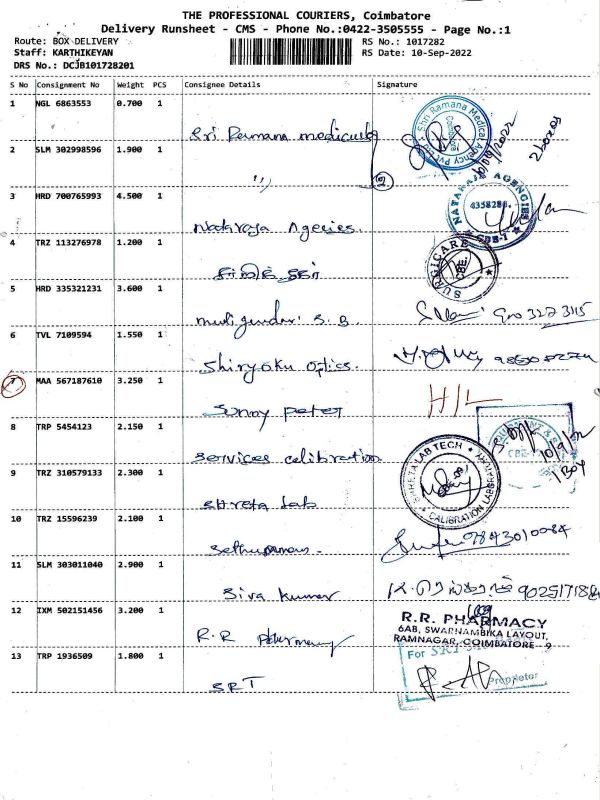 THE PROFESSIONAL COURIERS, Coimbatore
Delivery Runsheet - CMS - Phone No.:0422-3505555 - Page No.:1
Route: BOX DELIVERY RS No.: 1017282
Staff: KARTHIKEYAN RS Date: 10-Sep-2022
DRS No.: DCJB101728201
S No Consignment No Weight PCS Consignee Details Signature
1 NGL 6863553 0.700 1
Sri Ramana medicals
Shri Ramana Medical Agency Pvt Ltd
Coimbatore
10/09/2022
2 boxes
2 SLM 302998596 1.900 1
"
3 HRD 700765993 4.500 1
Nataraja Agecies.
NATARAJA AGENCIES
4358286.
CBE-1
4 TRZ 113276978 1.200 1
SURGICARE
CBE.
5 HRD 335321231 3.600 1
S. B.
6 TVL 7109594 1.550 1
optics.
7 MAA 567187610 3.250 1
sunny peter
H/L
8 TRP 5454123 2.150 1
services calibration
10/9/22
1 Box
9 TRZ 310579133 2.300 1
SHreta Lab
SHRETA LAB TECH
CALIBRATION LABORATORY
10 TRZ 15596239 2.100 1
9843010084
11 SLM 303011040 2.900 1
Siva kumar
12 IXM 502151456 3.200 1
R.R pharmacy
R.R. PHARMACY
6AB, SWARNAMBIKA LAYOUT,
RAMNAGAR, COIMBATORE - 9
13 TRP 1936509 1.800 1
SRT
For SRT
Proprietor